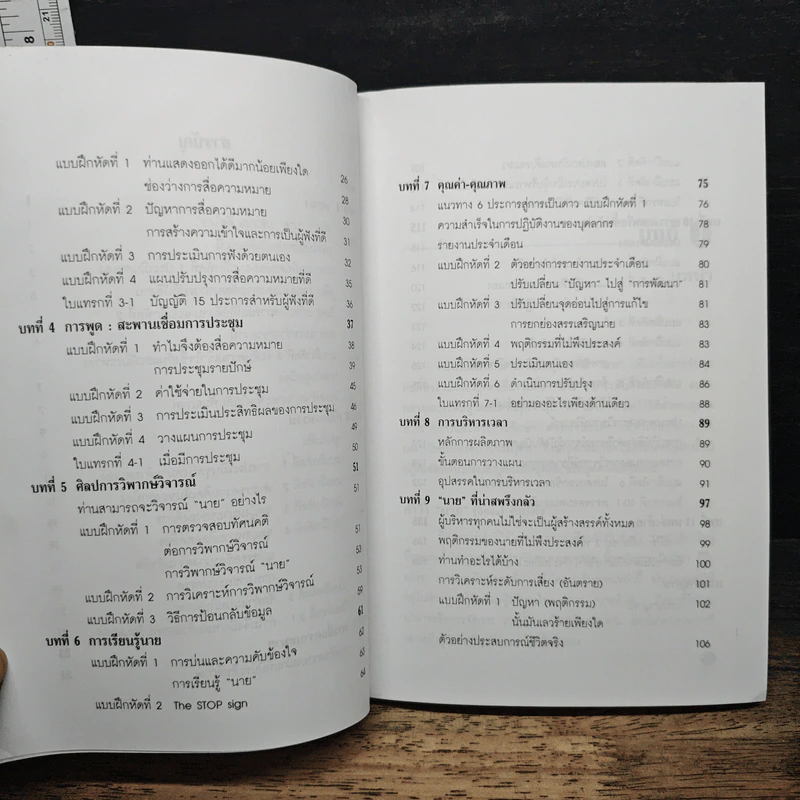 แบบฝึกหัดที่ 1 ท่านแสดงออกได้ดีมากน้อยเพียงใด
ช่องว่างการสื่อความหมาย 26
แบบฝึกหัดที่ 2 ปัญหาการสื่อความหมาย 28
การสร้างความเข้าใจและการเป็นผู้ฟังที่ดี 30
31
แบบฝึกหัดที่ 3 การประเมินการฟังด้วยตนเอง 32
แบบฝึกหัดที่ 4 แผนปรับปรุงการสื่อความหมายที่ดี 35
ใบแทรกที่ 3-1 บัญญัติ 15 ประการสำหรับผู้ฟังที่ดี 36
บทที่ 4 การพูด : สะพานเชื่อมการประชุม 37
แบบฝึกหัดที่ 1 ทำไมจึงต้องสื่อความหมาย 38
การประชุมรายปักษ์ 39
แบบฝึกหัดที่ 2 ค่าใช้จ่ายในการประชุม 45
แบบฝึกหัดที่ 3 การประเมินประสิทธิผลของการประชุม 46
แบบฝึกหัดที่ 4 วางแผนการประชุม 49
ใบแทรกที่ 4-1 เมื่อมีการประชุม 50
บทที่ 5 ศิลปการวิพากษ์วิจารณ์ 51
ท่านสามารถจะวิจารณ์ "นาย" อย่างไร 51
แบบฝึกหัดที่ 1 การตรวจสอบทัศนคติ
ต่อการวิพากษ์วิจารณ์ 51
การวิพากษ์วิจารณ์ "นาย" 53
แบบฝึกหัดที่ 2 การวิเคราะห์การวิพากษ์วิจารณ์ 53
แบบฝึกหัดที่ 3 วิธีการป้อนกลับข้อมูล 59
บทที่ 6 การเรียนรู้นาย 61
แบบฝึกหัดที่ 1 การบ่นและความคับข้องใจ 62
การเรียนรู้ "นาย" 63
แบบฝึกหัดที่ 2 The STOP sign 64
บทที่ 7 คุณค่า-คุณภาพ 75
แนวทาง 6 ประการสู่การเป็นดาว แบบฝึกหัดที่ 1 76
ความสำเร็จในการปฏิบัติงานของบุคลากร 78
รายงานประจำเดือน 79
แบบฝึกหัดที่ 2 ตัวอย่างการรายงานประจำเดือน 80
ปรับเปลี่ยน "ปัญหา" ไปสู่ "การพัฒนา" 81
แบบฝึกหัดที่ 3 ปรับเปลี่ยนจุดอ่อนไปสู่การแก้ไข 81
การยกย่องสรรเสริญนาย 83
แบบฝึกหัดที่ 4 พฤติกรรมที่ไม่พึงประสงค์ 83
แบบฝึกหัดที่ 5 ประเมินตนเอง 84
แบบฝึกหัดที่ 6 ดำเนินการปรับปรุง 86
ใบแทรกที่ 7-1 อย่ามองอะไรเพียงด้านเดียว 88
บทที่ 8 การบริหารเวลา 89
หลักการผลิตภาพ 89
ขั้นตอนการวางแผน 90
อุปสรรคในการบริหารเวลา 91
บทที่ 9 "นาย" ที่น่าสพรึงกลัว 97
ผู้บริหารทุกคนไม่ใช่จะเป็นผู้สร้างสรรค์ทั้งหมด 98
พฤติกรรมของนายที่ไม่พึงประสงค์ 99
ท่านทำอะไรได้บ้าง 100
การวิเคราะห์ระดับการเสี่ยง (อันตราย) 101
แบบฝึกหัดที่ 1 ปัญหา (พฤติกรรม) 102
นั้นมันเลวร้ายเพียงใด
ตัวอย่างประสบการณ์ชีวิตจริง 106